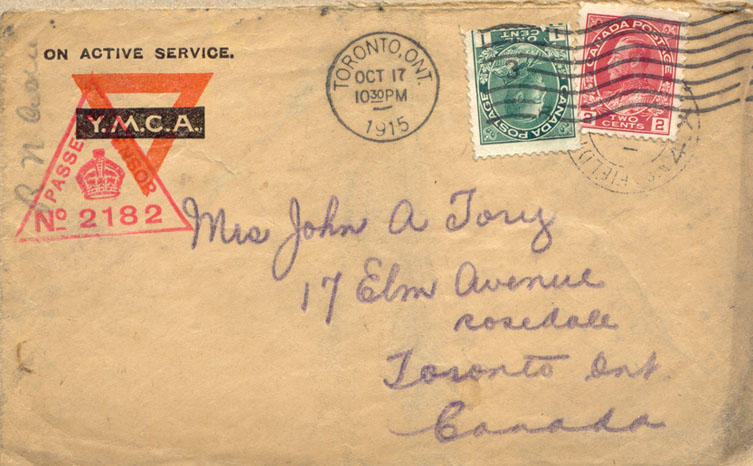 ON ACTIVE SERVICE.
Y.M.C.A.
PASSE NSOR
No 2182
TORONTO, ONT.
OCT 17
10 30 PM
1915
ONE CENT
1 1
CANADA POSTAGE
3
CANADA POSTAGE
2 TWO CENTS 2
FIELD
Mrs John A Tory
17 Elm Avenue
rosedale
Toronto Ont
Canada